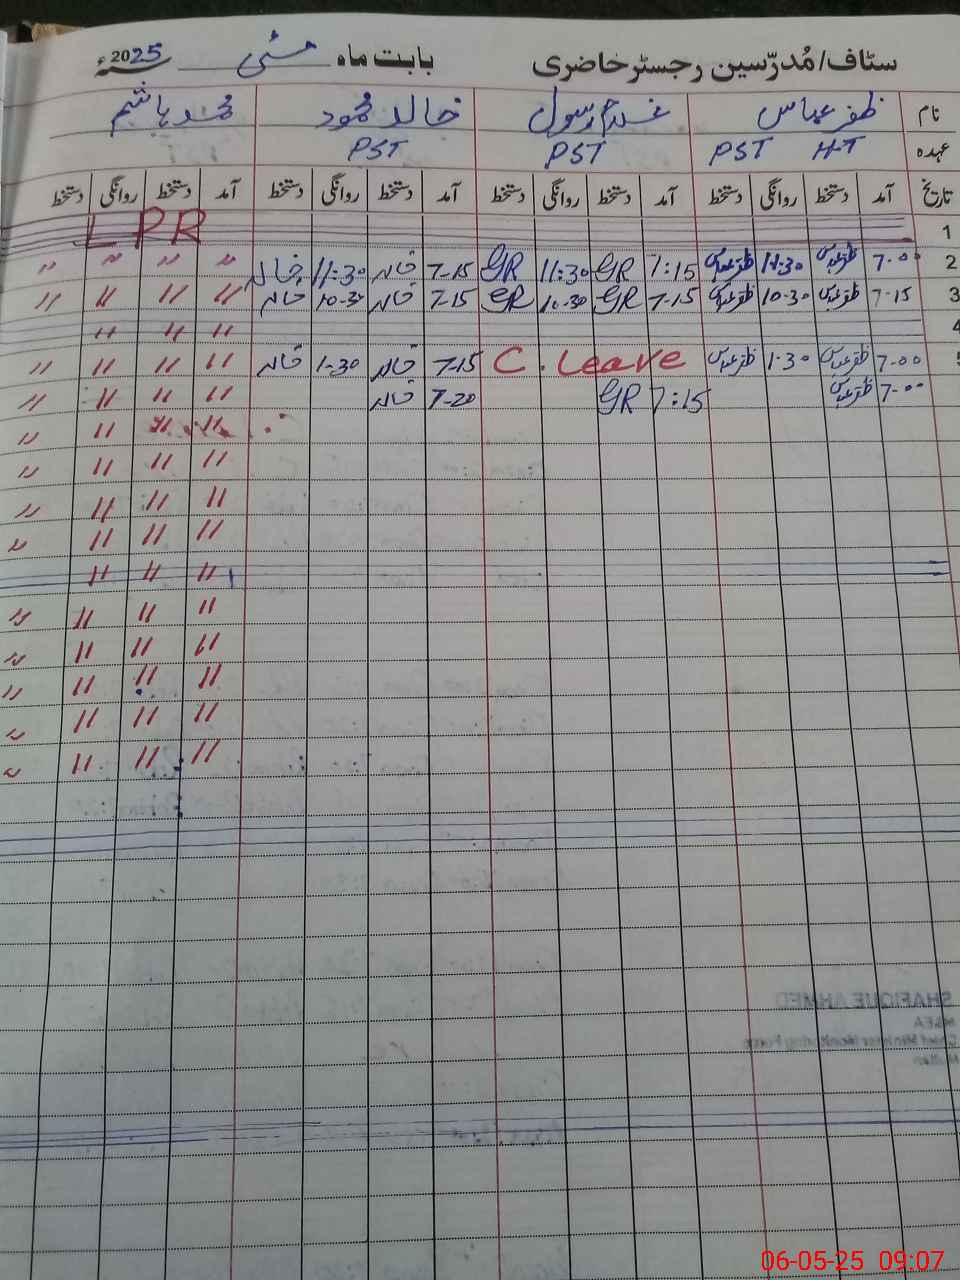 سٹاف/مُدرّسین رجسٹر حاضری بابت ماہ مئی سنہ 2025ء
نام ظفر عباس غلام رسول خالد محمود محمد ہاشم
عہدہ PST H-T PST PST
تاریخ آمد دستخط روانگی دستخط آمد دستخط روانگی دستخط آمد دستخط روانگی دستخط آمد دستخط روانگی دستخط
1 LPR
2 7-00 ظفر عباس 11-30 ظفر عباس 7:15 GR 11:30 GR 7-15 خالد 11:30 خالد " " " "
3 7-15 ظفر عباس 10-30 ظفر عباس 7-15 GR 10-30 GR 7-15 خالد 10-30 خالد " " " "
4 " " "
5 7-00 ظفر عباس 1-30 ظفر عباس C. Leave 7-15 خالد 1-30 خالد " " " "
7-00 ظفر عباس 7:15 GR 7-20 خالد " " " "
" " " "
" " " "
" " " "
" " " "
" " "
" " " "
" " " "
" " " "
" " " "
" " " "
SHAFIQUE AHMED
M&EA
Chief Minister Monitoring Force
Multan
06-05-25 09:07